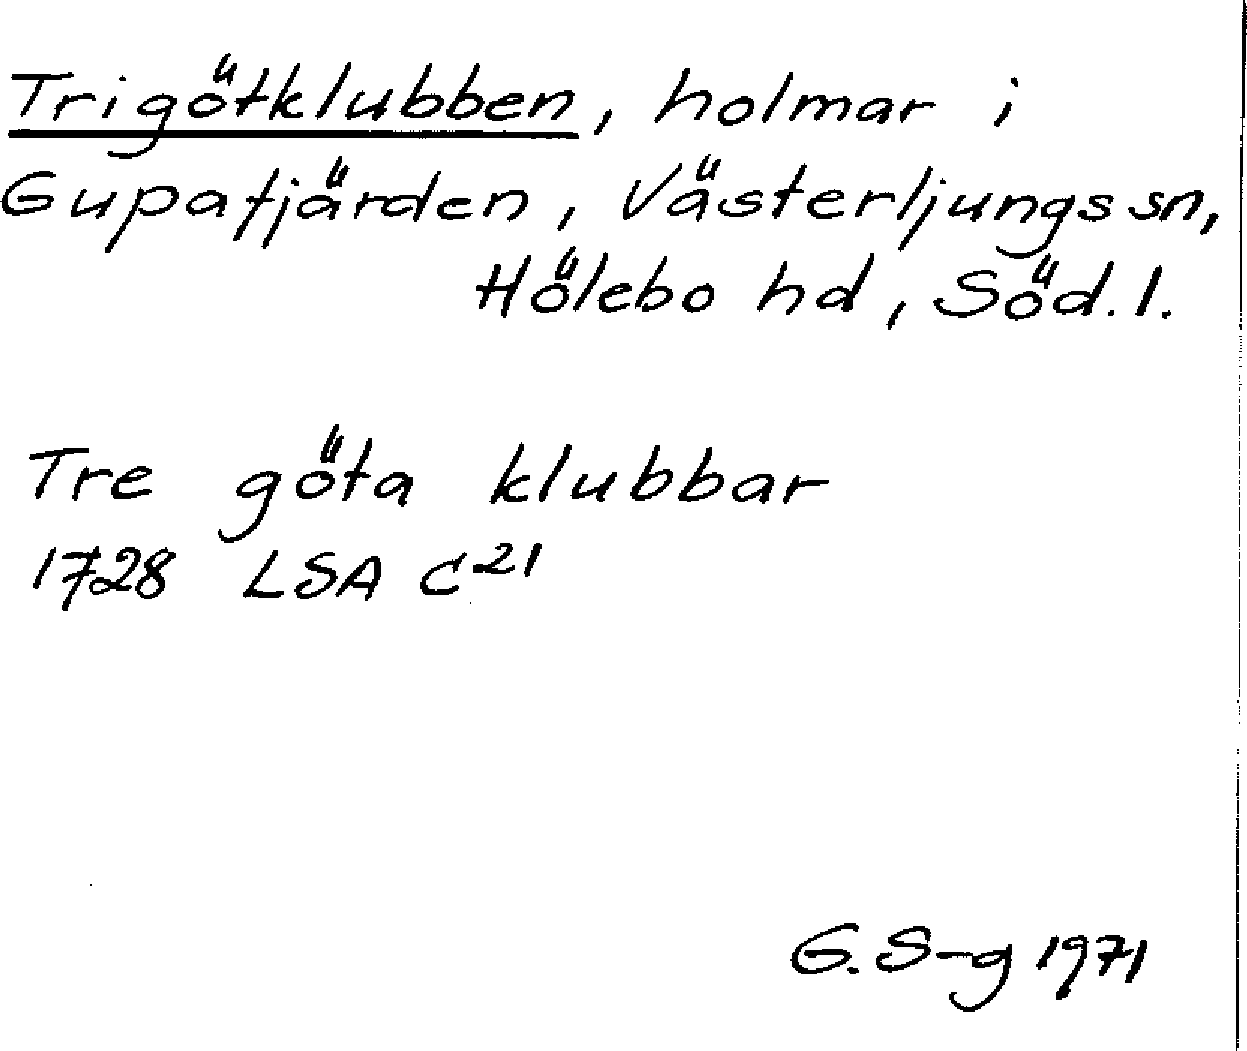 Trigötklubben, holmar i
Gupafjärden, Västerljungs sn,
Hölebo hd, Söd. l.
Tre göta klubbar
1728 LSA C²¹
G. S-g 1971